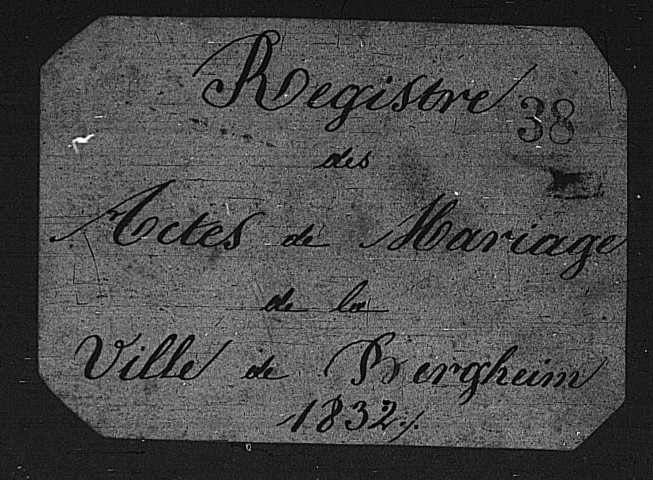 Registre
38
des
Actes de Mariage
de la
Ville de Bergheim
1832./.